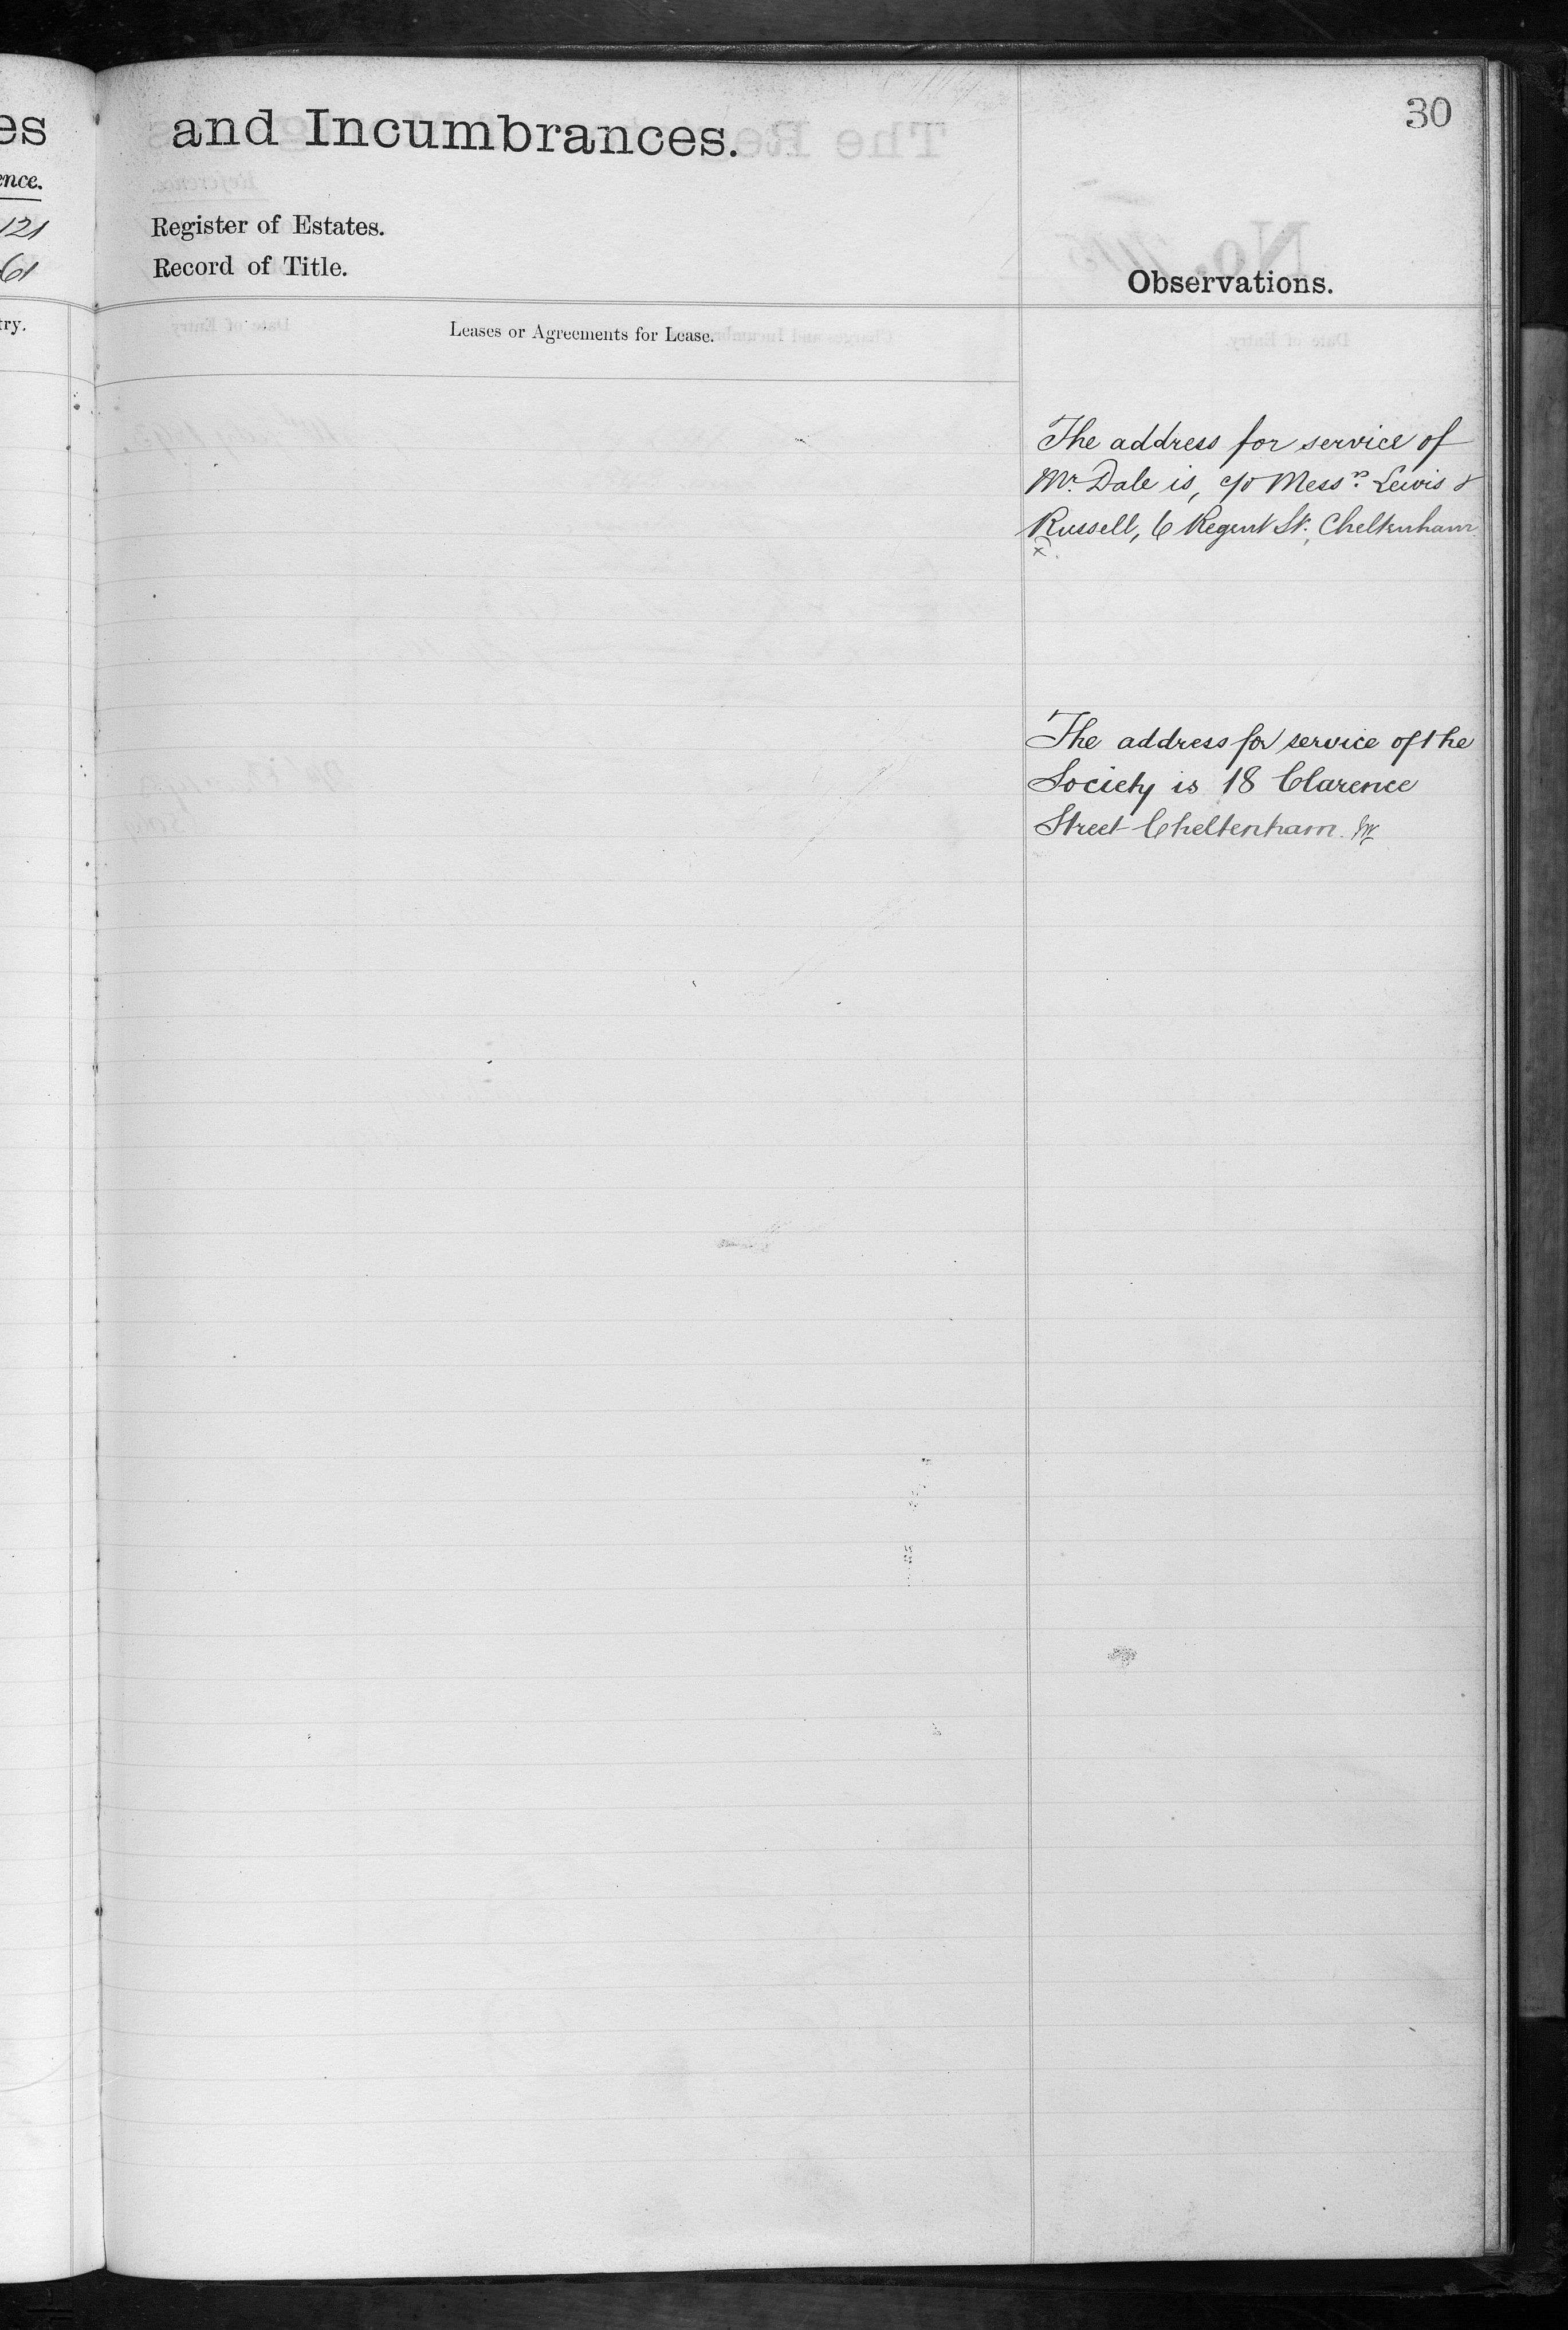 30
es and Incumbrances.
ence.
121 Register of Estates.
61 Record of Title.
Observations.
try. Leases or Agreements for Lease.
The address for service of
Mr. Dale is, c/o Messrs. Lewis &
Russell, 6 Regent St. Cheltenham
The address for service of the
Society is 18 Clarence
Street Cheltenham.